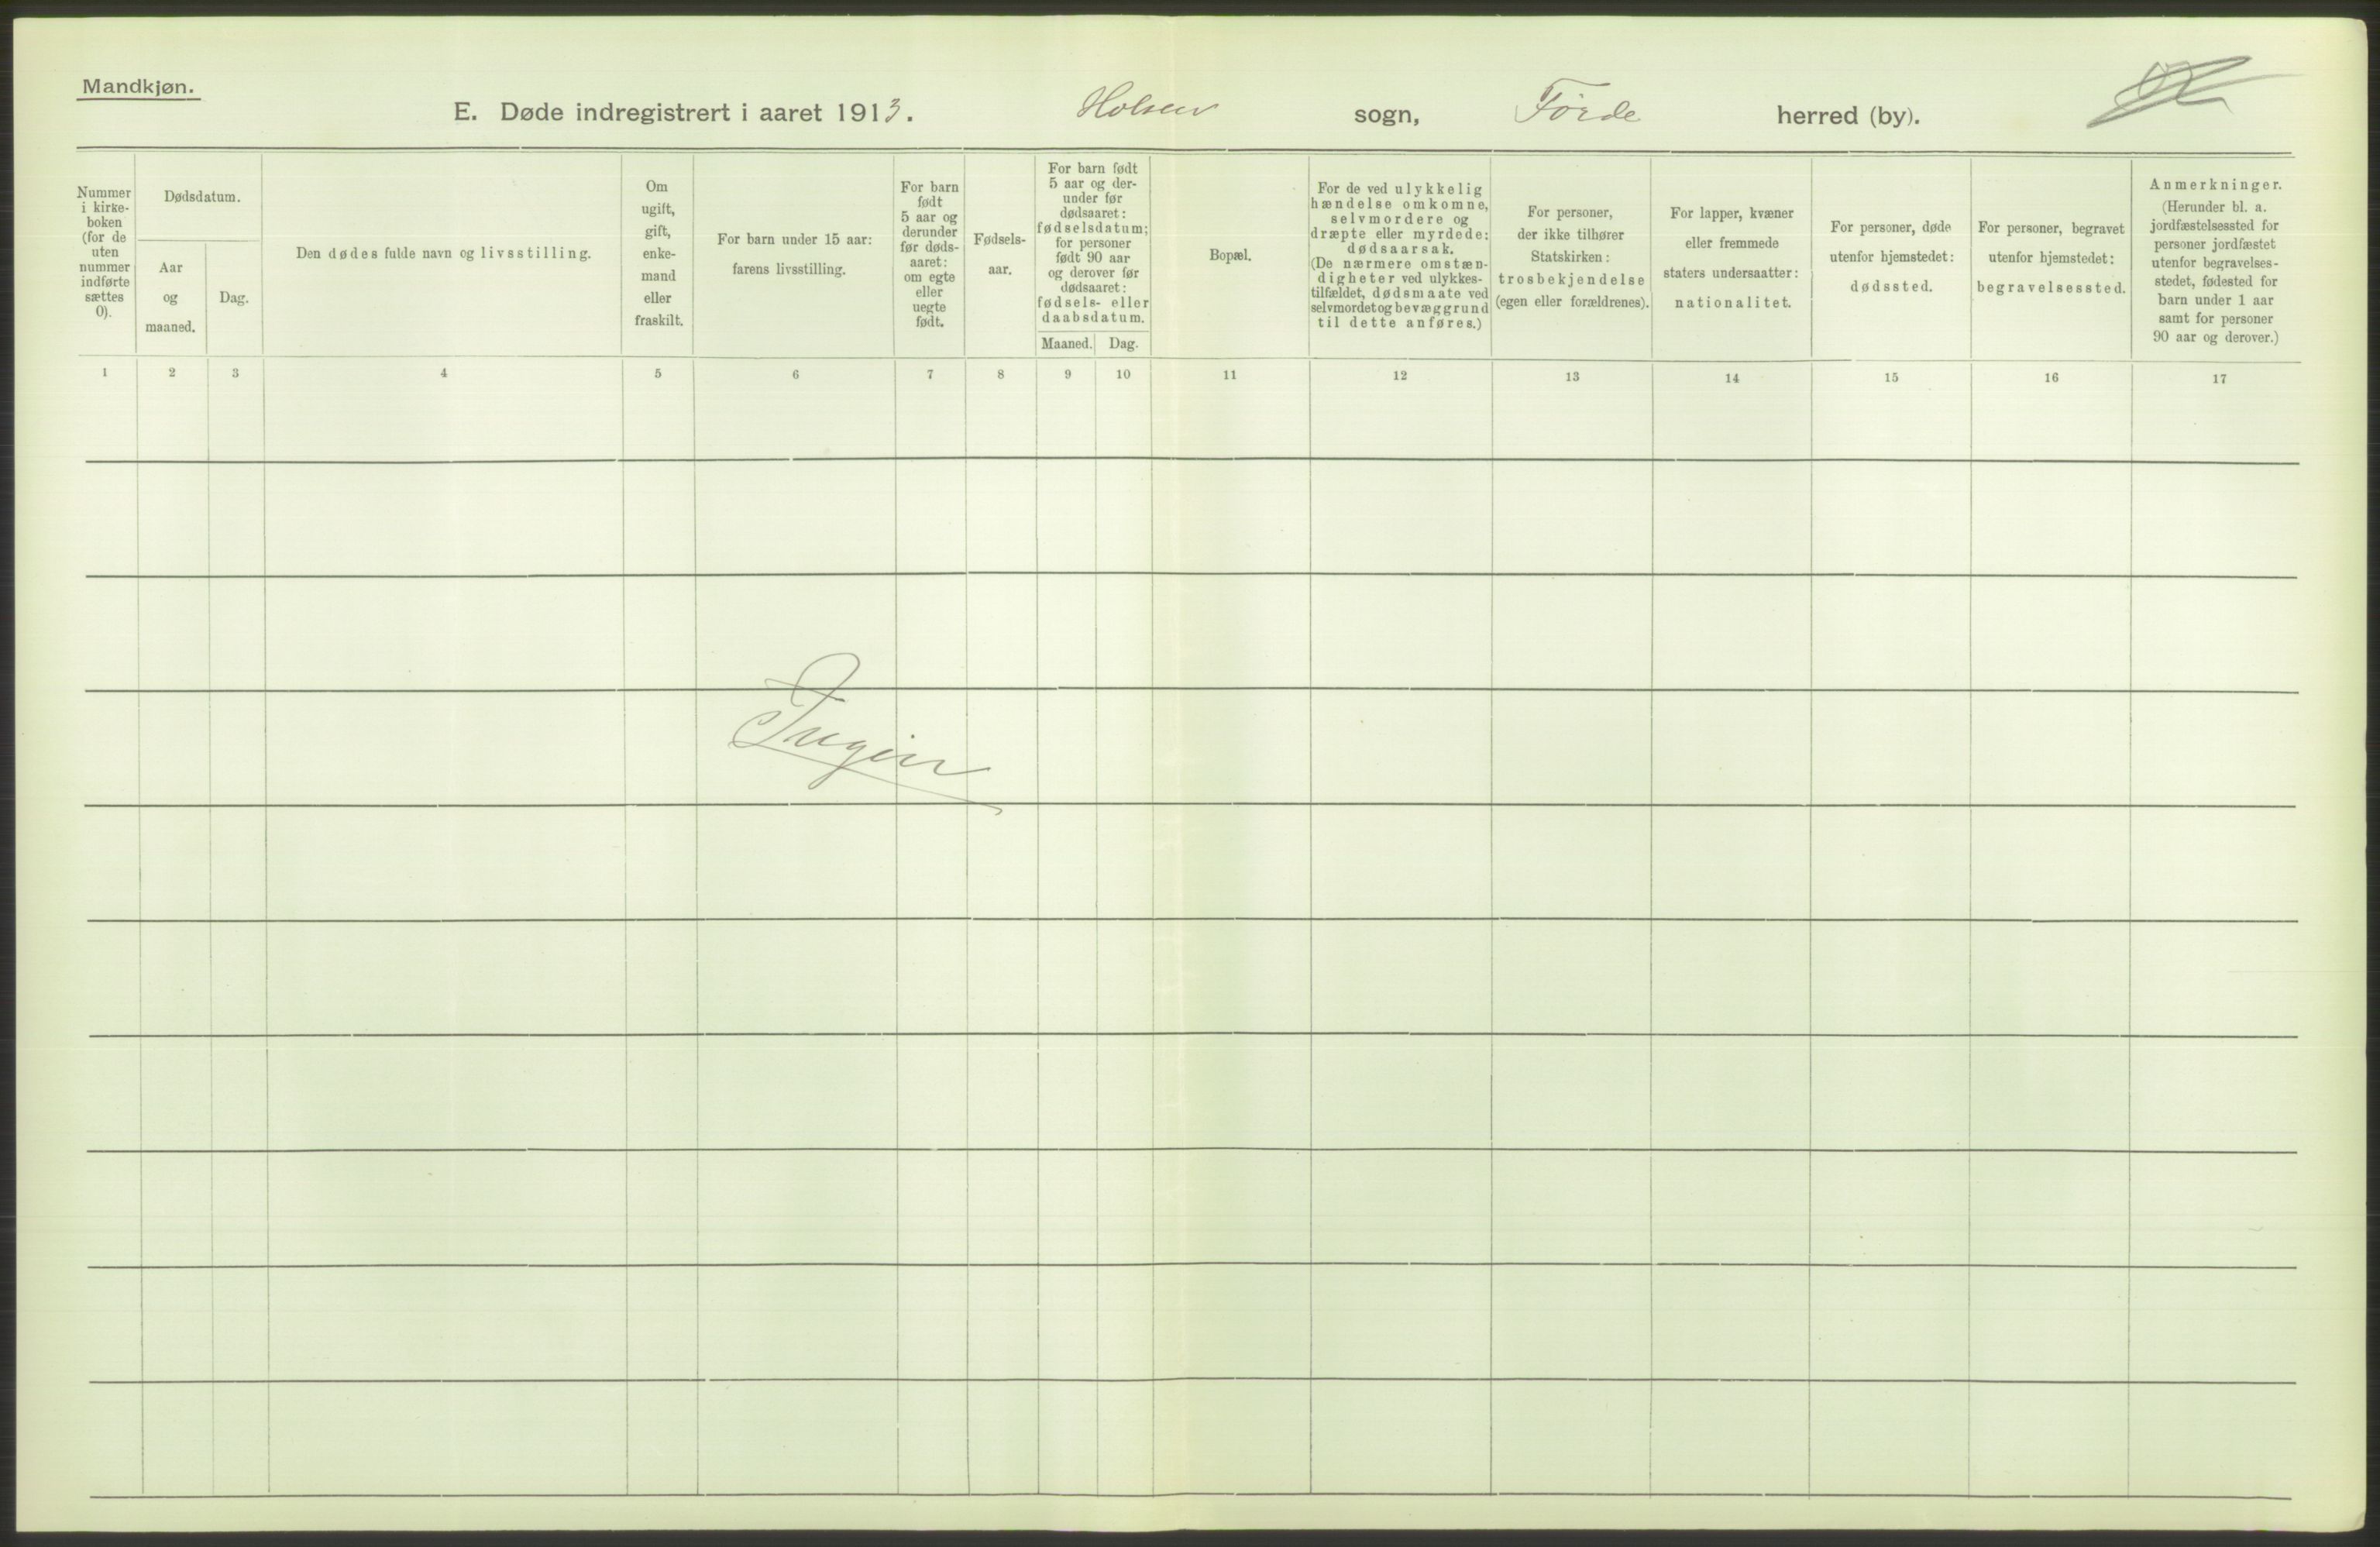 Mandkjøn.
E. Døde indregistrert i aaret 1913. Holsen sogn, Førde herred (by).
Nummer
i kirke-
boken
(for de
uten
nummer
indførte
sættes
0).
Dødsdatum.
Aar
og
maaned.
Dag.
Den dødes fulde navn og livsstilling.
Om
ugift,
gift,
enke-
mand
eller
fraskilt.
For barn under 15 aar:
farens livsstilling.
For barn
født
5 aar og
derunder
før døds-
aaret:
om egte
eller
uegte
født.
Fødsels-
aar.
For barn født
5 aar og der-
under før
dødsaaret:
fødselsdatum;
for personer
født 90 aar
og derover før
dødsaaret:
fødsels- eller
daabsdatum.
Maaned.
Dag.
Bopæl.
For de ved ulykkelig
hændelse omkomne,
selvmordere og
dræpte eller myrdede:
dødsaarsak.
(De nærmere omstæn-
digheter ved ulykkes-
tilfældet, dødsmaate ved
selvmordet og bevæggrund
til dette anføres.)
For personer,
der ikke tilhører
Statskirken:
trosbekjendelse
(egen eller forældrenes).
For lapper, kvæner
eller fremmede
staters undersaatter:
nationalitet.
For personer, døde
utenfor hjemstedet:
dødssted.
For personer, begravet
utenfor hjemstedet:
begravelsessted.
Anmerkninger.
(Herunder bl. a.
jordfæstelsessted for
personer jordfæstet
utenfor begravelses-
stedet, fødested for
barn under 1 aar
samt for personer
90 aar og derover.)
1 2 3 4 5 6 7 8 9 10 11 12 13 14 15 16 17
Ingen